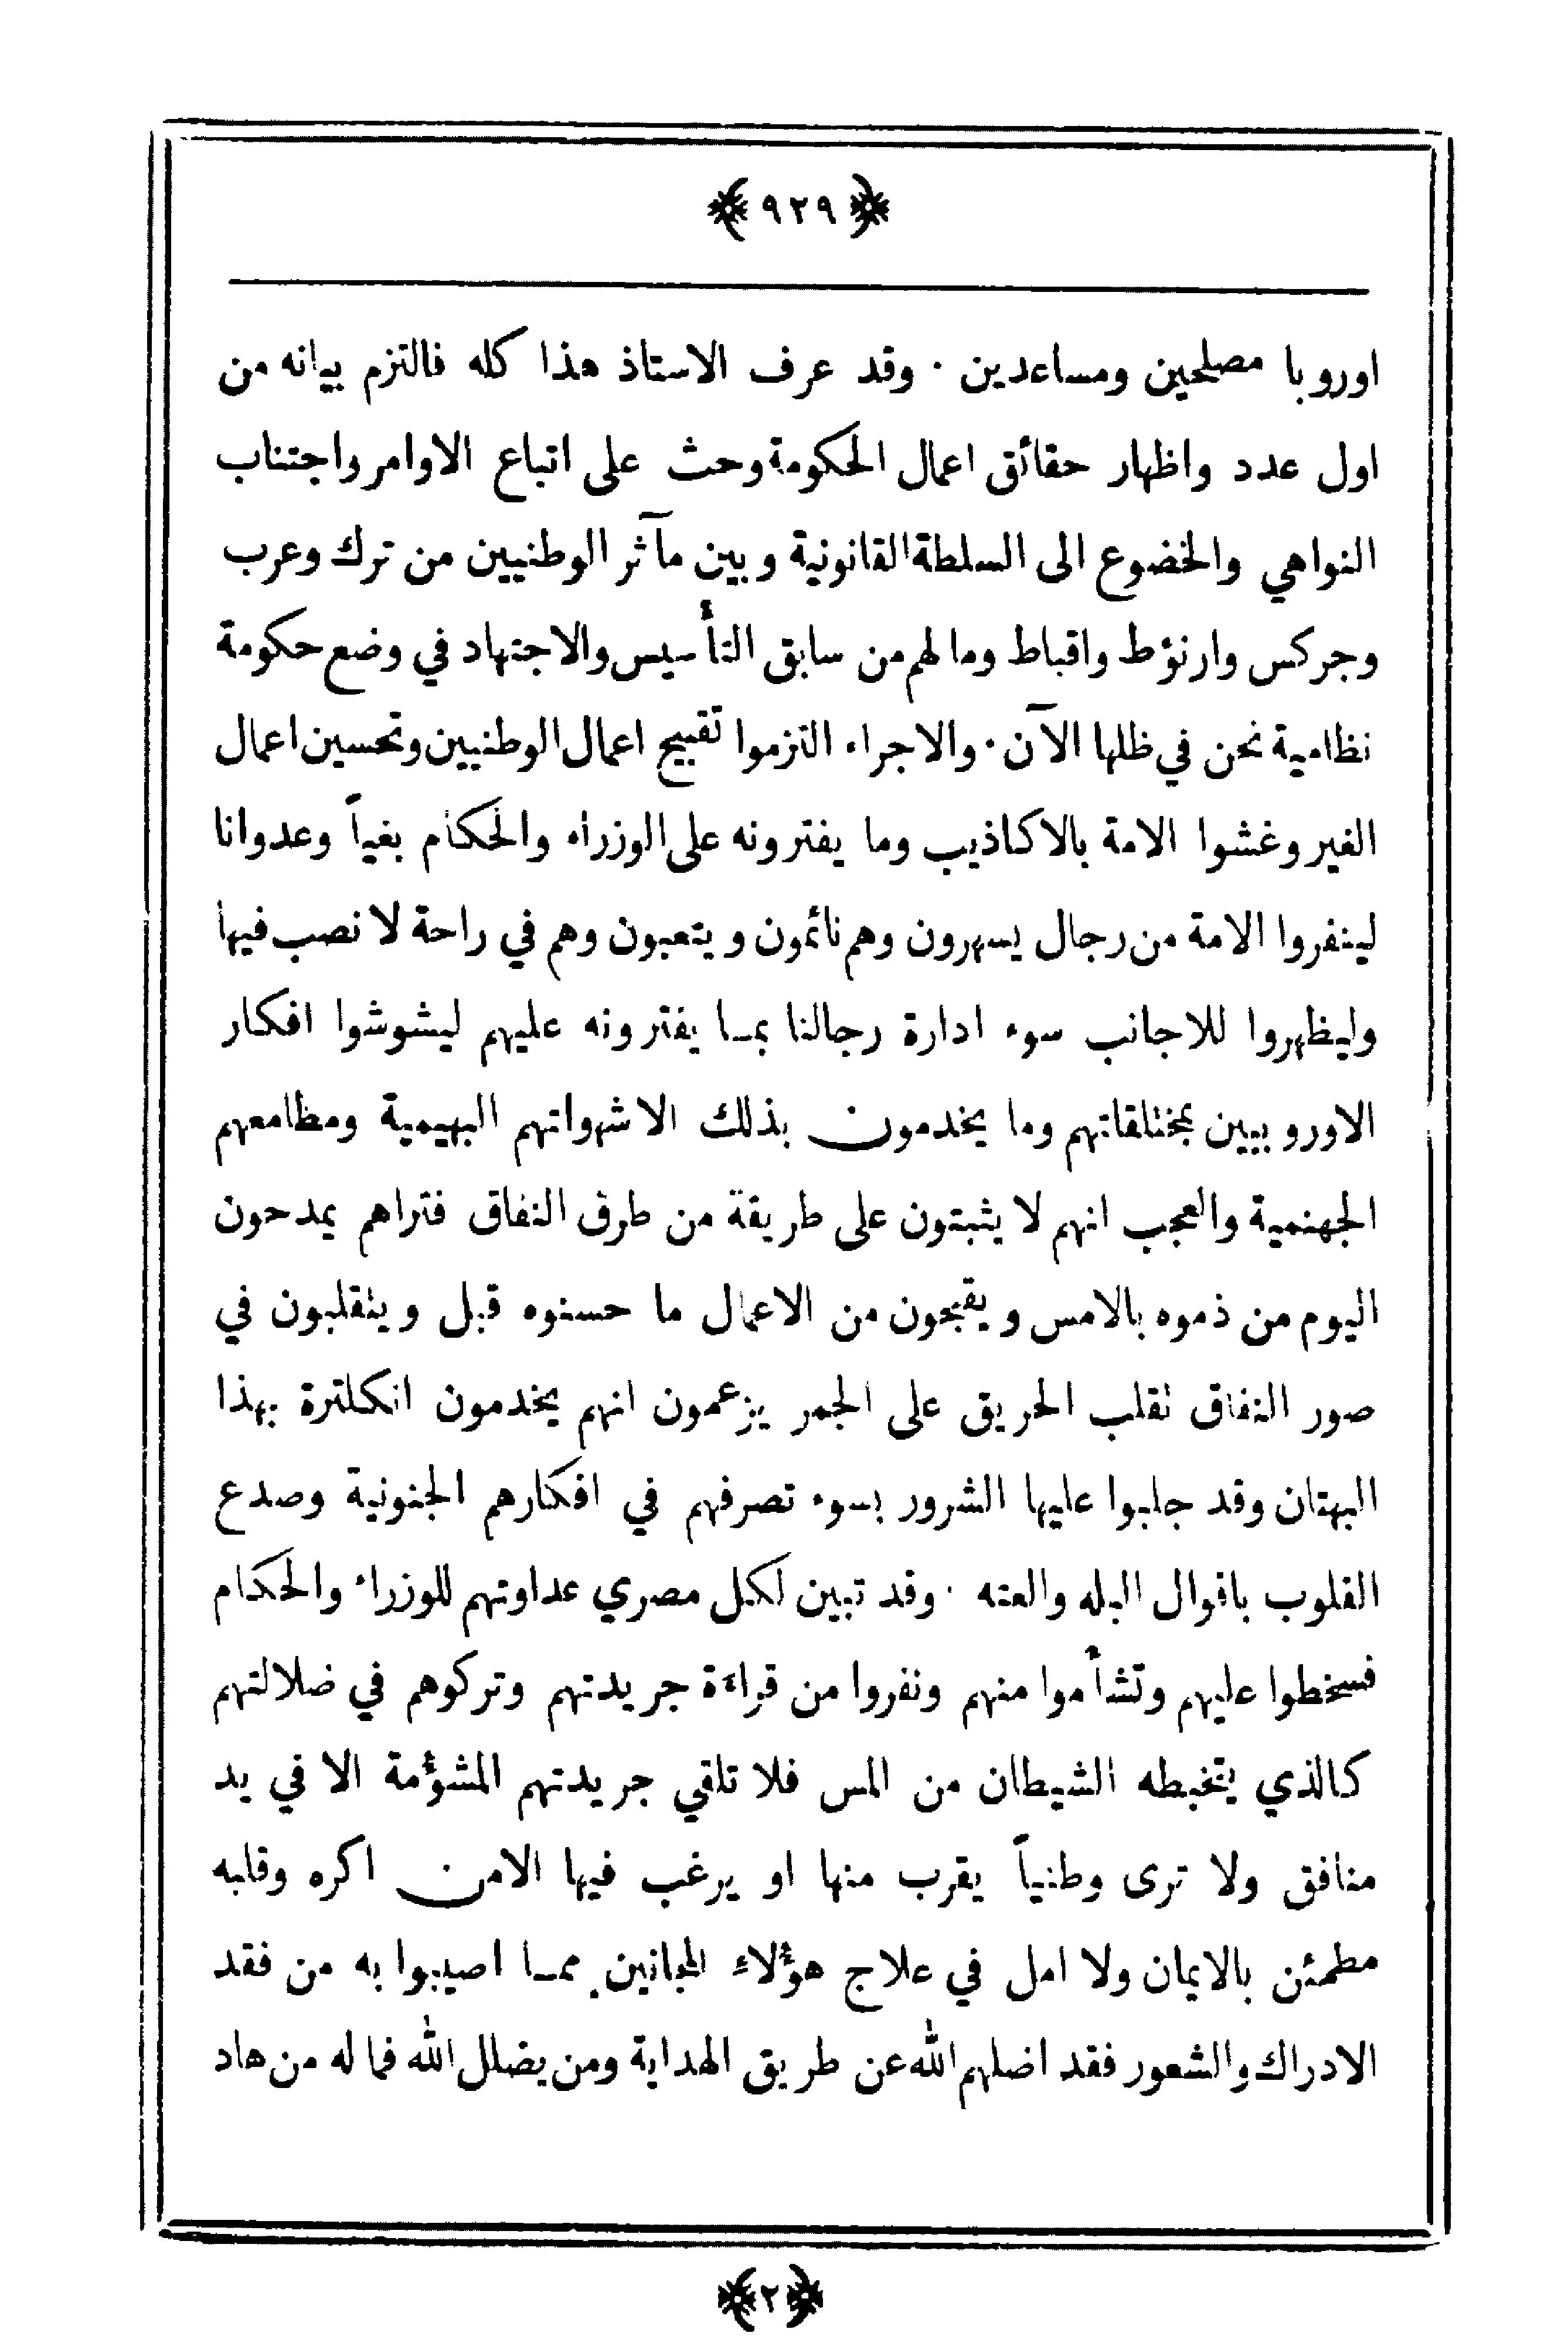 ﴿ ٩٢٩ ﴾
اوروبا مصلحين ومساعدين . وقد عرف الاستاذ هذا كله فالتزم بيانه من
اول عدد واظهار حقائق اعمال الحكومة وحث على اتباع الاوامر واجتناب
النواهي والخضوع الى السلطة القانونية وبين مآثر الوطنيين من ترك وعرب
وجركس وارنؤط واقباط وما لهم من سابق التأسيس والاجتهاد في وضع حكومة
نظامية نحن في ظلها الآن . والاجراء التزموا تقبيح اعمال الوطنيين وتحسين اعمال
الغير وغشوا الامة بالاكاذيب وما يفترونه على الوزراء والحكام بغياً وعدوانا
لينفروا الامة من رجال يسهرون وهم نائمون ويتعبون وهم في راحة لا نصب فيها
وليظهروا للاجانب سوء ادارة رجالنا بما يفترونه عليهم ليشوشوا افكار
الاوروبيين بمختلقاتهم وما يخدمون بذلك الا شهواتهم البهيمية ومطامعهم
الجهنمية والعجب انهم لا يثبتون على طريقة من طرق النفاق فتراهم يمدحون
اليوم من ذموه بالامس ويقبحون من الاعمال ما حسنوه قبل ويتقلبون في
صور النفاق تقلب الحريق على الجمر يزعمون انهم يخدمون انكلترة بهذا
البهتان وقد جلبوا عليها الشرور بسوء تصرفهم في افكارهم الجنونية وصدع
القلوب باقوال البله والعته . وقد تبين لكل مصري عداوتهم للوزراء والحكام
فسخطوا عليهم وتشأموا منهم ونفروا من قراءة جريدتهم وتركوهم في ضلالتهم
كالذي يتخبطه الشيطان من المس فلا تلقي جريدتهم المشؤمة الا في يد
منافق ولا ترى وطنياً يقرب منها او يرغب فيها الا من اكره وقلبه
مطمئن بالايمان ولا امل في علاج هؤلاء المجانين مما اصيبوا به من فقد
الادراك والشعور فقد اضلهم الله عن طريق الهداية ومن يضلل الله فما له من هاد
﴿ ٢ ﴾